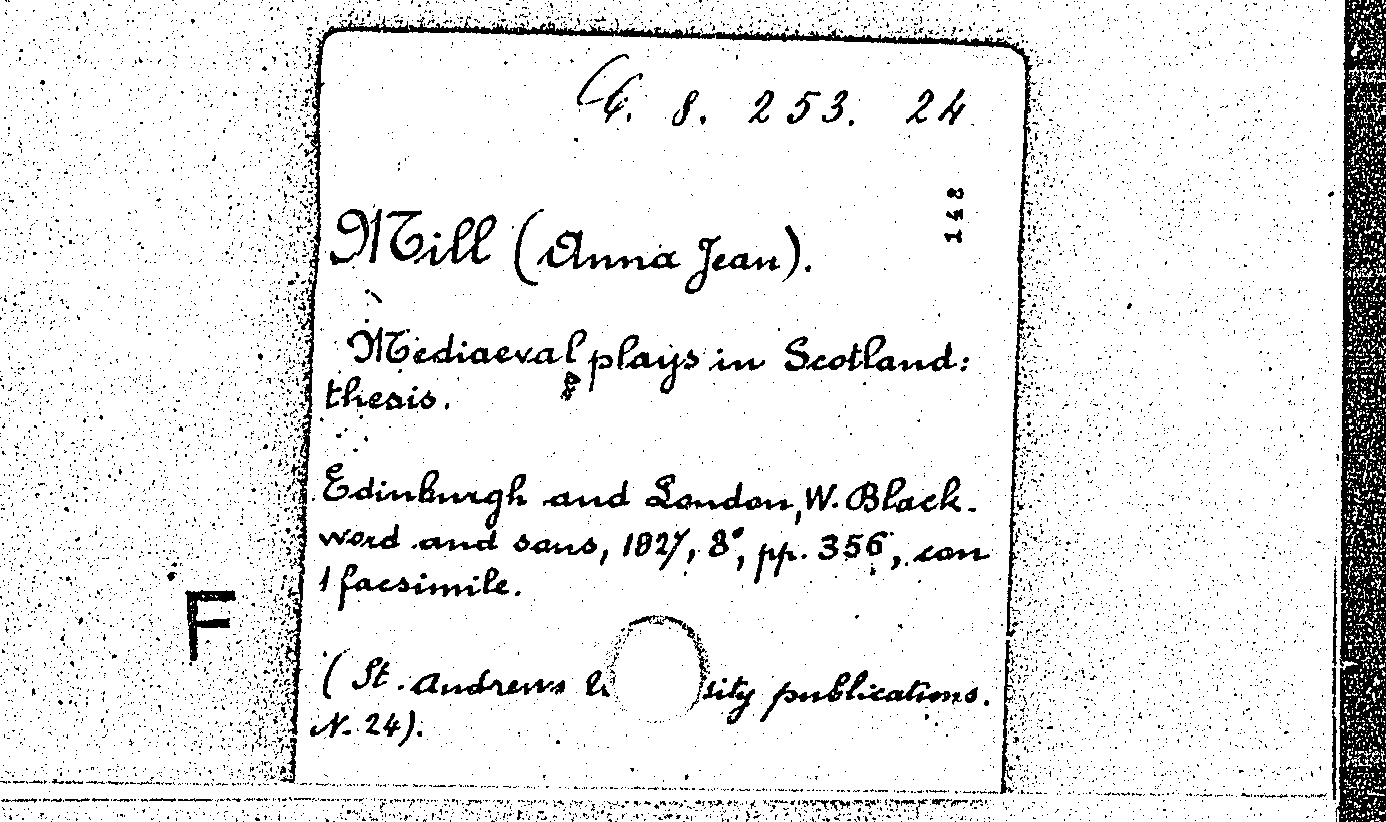 G. 8. 253. 24
148
Mill (Anna Jean).
Mediaeval plays in Scotland:
thesis.
Edinburgh and London, W. Black-
word and sons, 1927, 8°, pp. 356, con
1 facsimile.
F
(St. Andrews U sity publications.
N. 24).